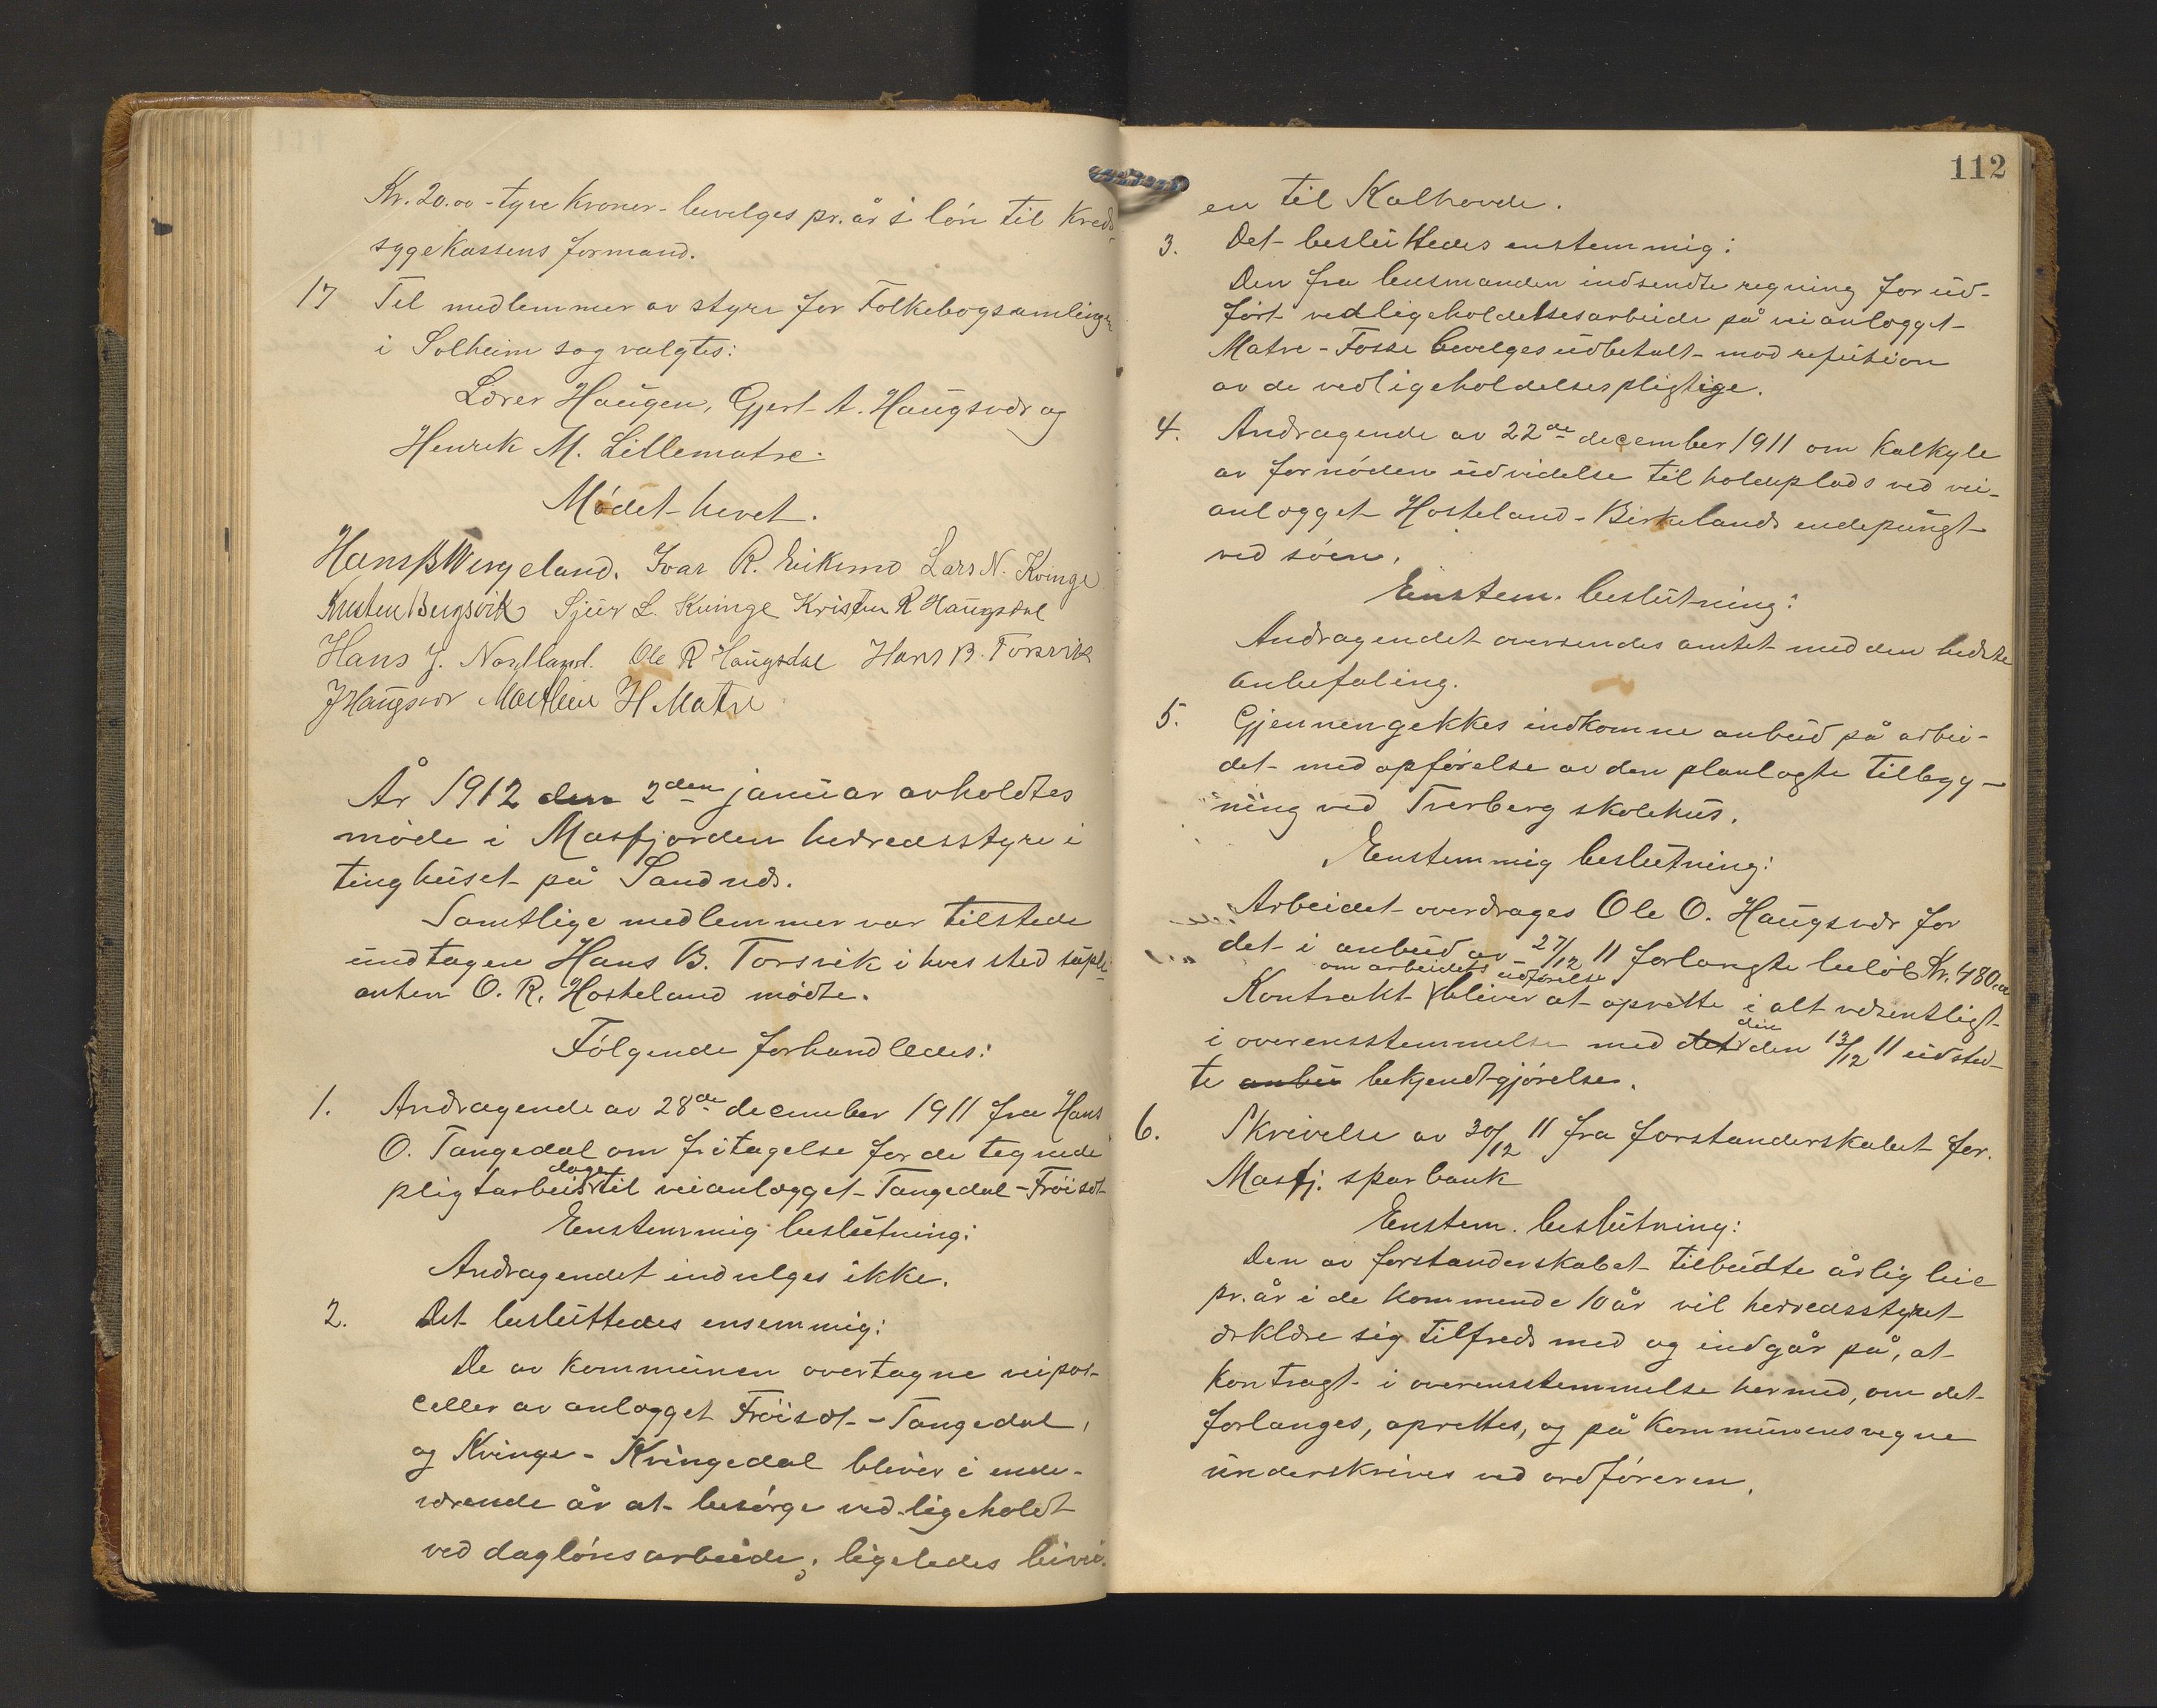 Kr. 20.00 - tyve kroner - bevilges pr. år i løn til Kreds-
sygekassens formand.
17 Til medlemmer av styre for Folkebogsamlingen
i Solheim sog valgtes:
Lærer Haugen, Gjert A. Haugsvær og
Henrik M. Lillematre.
Mødet hevet.
Hans B Wergeland. Ivar R. Eikemo Lars N. Kvinge
Kristen Bergsvik Sjur L. Kvinge Kristen R Haugsdal
Hans J. Nordland. Ole R Haugsdal Hans B. Torsvik
J Haugsvær Mathias H Matre
År 1912 den 2den januar avholdtes
møde i Masfjorden herredsstyre i
tinghuset på Sandnæs.
Samtlige medlemmer var tilstede
undtagen Hans B. Torsvik i hvis sted supli-
anten O. R. Hosteland mødte.
Følgende forhandledes:
1. Andragende av 28de december 1911 fra Hans
O. Tangedal om fritagelse for de tegnede
pligtarbeidsdager til veianlægget Tangedal - Frøiset
Enstemmig beslutning:
Andragendet indvilges ikke.
2. Det besluttedes ensemmig:
De av kommunen overtagne veipar-
celler av anlægget Frøiset - Tangedal,
og Kvinge - Kvingedal bliver i inde-
værende år at besørge vedligeholdt
ved daglønsarbeide; ligeledes bivei-
112
en til Kalhovde.
3. Det besluttedes enstemmig:
Den fra lensmanden indsendte regning for ud-
ført vedligeholdelsesarbeide på veianlægget
Matre - Fosse bevilges udbetalt mod refusion
av de vedligeholdelsespligtige.
4. Andragende av 22de december 1911 om kalkyle
av fornøden udvidelse til holdeplads ved vei-
anlægget Hosteland - Birkelands endepungt
ved søen.
Enstem. beslutning:
Andragendet oversendes amtet med den bedste
anbefaling.
5. Gjennemgikkes indkomne anbud på arbei-
det med opførelse av den planlagte tilbygg-
ning ved Tverberg skolehus.
Enstemmig beslutning:
Arbeidet overdrages Ole O. Haugsvær for
det i anbud av 27/12 11 forlangte beløb Kr. 480.00
Kontrakt om arbeidets udførelse bliver at oprette i alt væsentligt
i overensstemmelse med det din den 13/12 11 udsted-
te anbu bekjendtgjørelse.
6. Skrivelse av 30/12 11 fra forstanderskabet for
Masfj. sparbank
Enstem. beslutning:
Den av forstanderskabet tilbudte årlig leie
pr. år i de kommende 10 år vil herredsstyret
ærklære sig tilfreds med og indgår på, at
kontragt i overensstemmelse hermed, om det
forlanges, oprettes, og på kommunens vegne
underskrives ved ordføreren.